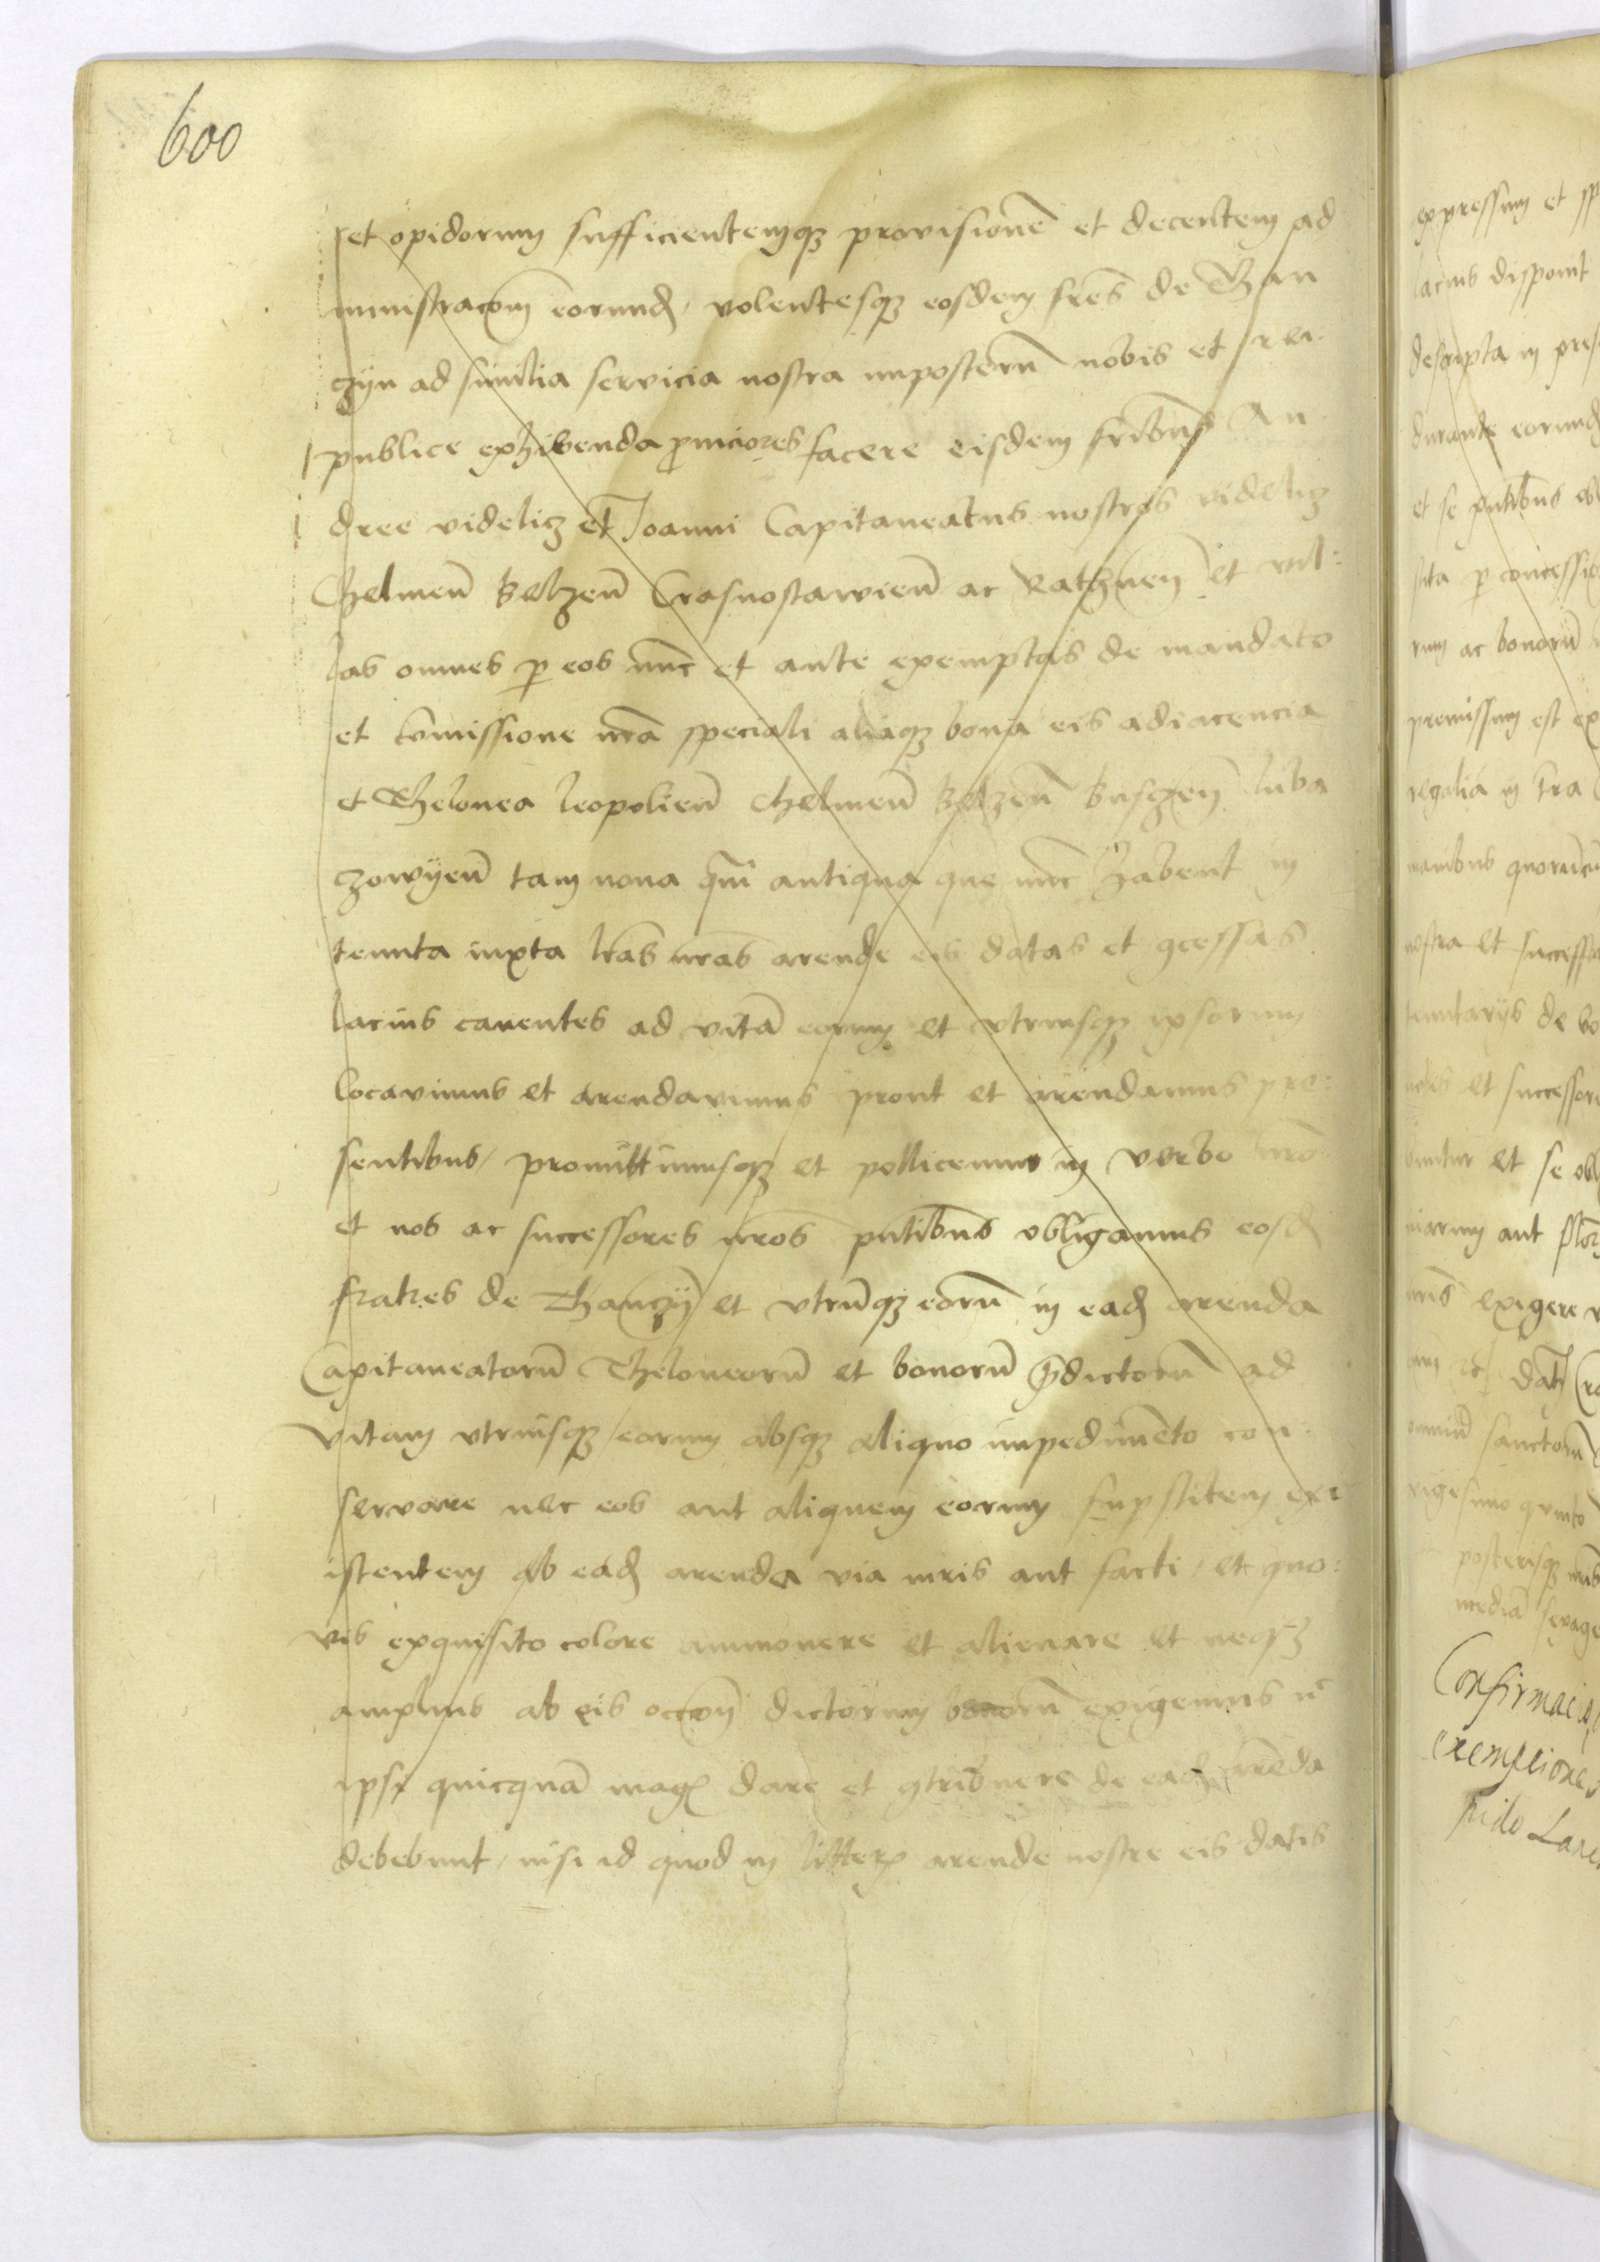 600
et opidorum sufficientemqꝫ provisionē et decentem ad
ministracōm eorundꝫ, volentesqꝫ eosdem frēs de Than
czyn ad similia servicia nostra imposterū nobis et rei
publice exhibenda p̄niciores facere eisdem fribus An
dree videlicꝫ et Joanni Capitaneatus nostros videlicꝫ
Chelmeñ Belzeñ Crasnostavieñ ac Rathnen̄ et vil:
las omnes ꝑ eos nūc et ante exemptas de mandato
et cōmissione nrā speciali aliaqꝫ bona eis adiacencia
et Thelonea leopolieñ chelmeñ Belzeñ Busczen̄ luba
czowyeñ tam nova qm̄ antiqua que nūc habent in
tenuta iuxta lrās nrās arende eis datas et ꝯcessas
lacius caventes ad vitā eorum et vtriusqꝫ ipsorum
locavimus et arendavimus prout et arendamus pre:
sentibus, promittimusqꝫ et pollicemur in verbo nrō
et nos ac successores nrōs pn̄tibus obligamus eosdꝫ
fratres de Thanczÿ et vtrūqꝫ eorū in eadꝫ arenda
Capitaneatorū Theloneorū et bonorū p̄dictorū ad
vitam vtriusqꝫ eorum absqꝫ aliquo impedimēto con:
servare nec eos aut aliquem eorum supstitem exi
istentem ab eadꝫ arenda via iuris aut facti, et quo:
vis exquisito colore ammovere et alienare et neqꝫ
amplius ab eis occōn̄ dictorum bonorū exigemus
ipsi quicquā magꝭ dare et ꝯtribuere de eadꝫ arēda
debebunt, nisi id quod in litterꝭ arende nostre eis datis
expressum et
lacius disponit
descripta in
durante eorundꝫ
et se pn̄tibus
sita ꝑ concessio
rum ac bonorū
premissum est
regalia in
manibus
nostra et
de bo
et successor
et se obl
aut
exigere
Datꝫ
sanctorū
vigesimo quinto
posterisqꝫ
mediā
Confirmaci
exempcionis